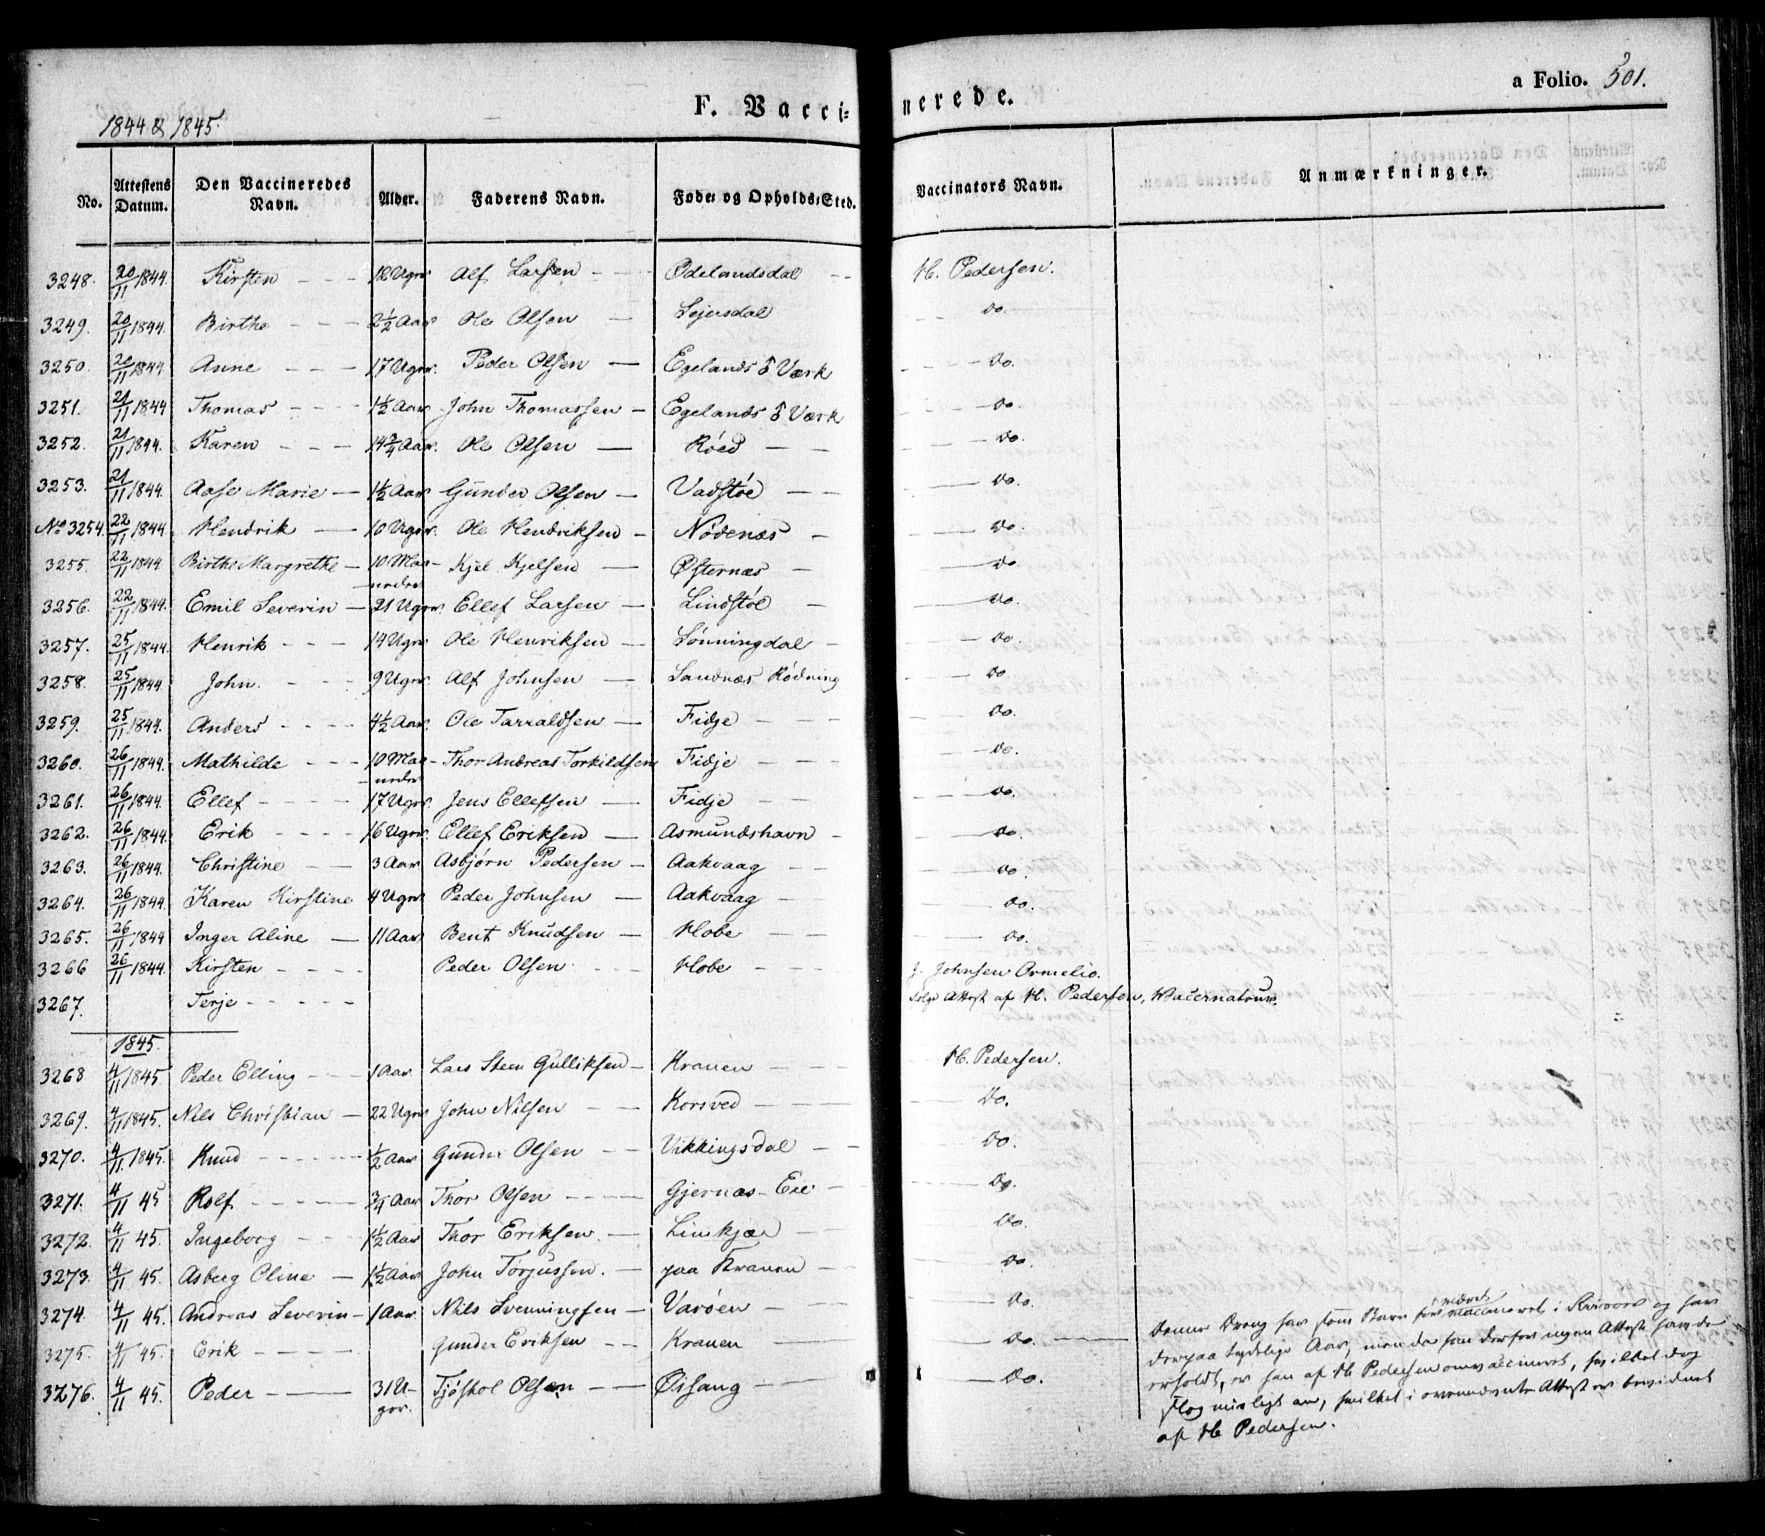 1844 & 1845.
F. Vaccinerede.
a Folio. 501.
No. Attestens Datum. Den Vaccineredes Navn. Alder. Faderens Navn. Føde- og Opholds-Sted. Vaccinators Navn. Anmærkninger.
3248. 20/11 1844. Kirsten 18 Uger Alf Larsen Ødelandsdal H. Pedersen.
3249. 20/11 1844. Birthe 2½ Aar Ole Olsen Lejersdal do.
3250. 21/11 1844 Anne 17 Uger. Peder Olsen Egelands Værk do.
3251. 21/11 1844 Thomas 1½ Aar John Thomassen Egelands Værk do.
3252. 21/11 1844. Karen 14¾ Aar. Ole Olsen Røed do.
3253. 21/11 1844. Aase Marie 1½ Aar Gunder Olsen Vadstøe do.
No 3254. 22/11 1844 Hendrik 10 Uger Ole Hendriksen Nødenæs do.
3255. 22/11 1844 Birthe Margrethe 10 Maaneder Kjel Kjelsen Østernæs do.
3256. 22/11 1844. Emil Severin 21 Uger Ellef Larsen Lindstøl do.
3257. 25/11 1844. Henrik 14 Uger Ole Henriksen Lønningdal do.
3258. 25/11 1844. John 9 Uger. Alf Johnsen Sandnæs Rødning do.
3259. 25/11 1844. Anders 4½ Aar. Ole Tarraldsen Fidje do.
3260. 26/11 1844. Mathilde 10 Maaneder Thor Andreas Torkildsen Fidje do.
3261. 26/11 1844. Ellef 17 Uger Jens Ellefsen Fidje do.
3262. 26/11 1844. Erik 16 Uger. Ellef Eriksen Asmundshavn do.
3263. 26/11 1844. Christine 3 Aar Asbjørn Pedersen Aakvaag do.
3264. 26/11 1844. Karen Kirstine 4 Uger Peder Johnsen Aakvaag do.
3265. 26/11 1844 Inger Aline 11 Aar Bent Knudsen Hobe do.
3266 26/11 1844. Kirsten Peder Olsen Hobe J. Johnsen Ormelie.
3267. Terje Attest af H. Pedersen, Vaccinateur.
1845.
3268 4/11 1845 Peder Elling 1 Aar Lars Steen Gulliksen Kranen H. Pedersen.
3269. 4/11 1845. Nils Christian 22 Uger John Nilsen Korsved Do.
3270. 4/11 1845. Knud ½ Aar Gunder Olsen Vikkingsdal Do.
3271. 4/11 45 Rolf ¾ Aar Thor Olsen Gjernæs-Eie Do.
3272. 4/11 45. Ingeborg 1½ Aar Thor Eriksen Linkjær Do.
3273. 4/11 45. Asberg Oline 1½ Aar John Torjussen. paa Kranen do.
3274. 4/11 45. Andreas Severin 1 Aar Nils Svenningsen Varøen Do.
3275. 4/11 45. Erik Gunder Eriksen Kranen Do.
3276. 4/11 45. Peder 31 Uger. Tjøstol Olsen Øisang Do.
Denne Dreng har som Barn før været vaccineret i Riisøer og har
derpaa tydelige Aar, men da han derfor ingen Attest havde
erholdt, er han af H Pedersen omvaccineret, hvilket dog
slog misligt an, hvilket i ovennævnte Attest er bevidnet
af H Pedersen.